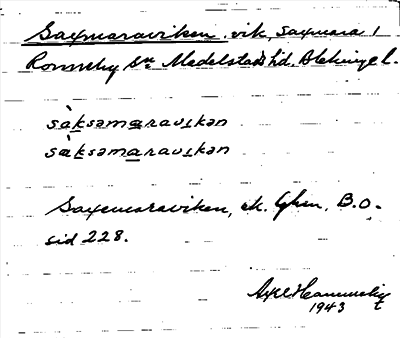 Saxmaraviken, vik, Saxmara 1
Ronneby sn Medelstads hd. Blekinge l.
sàksəmaravikən
sàksəmaravikən
Saxemaraviken, ek. Ghm, B.O.
sid 228.
Axel
1943